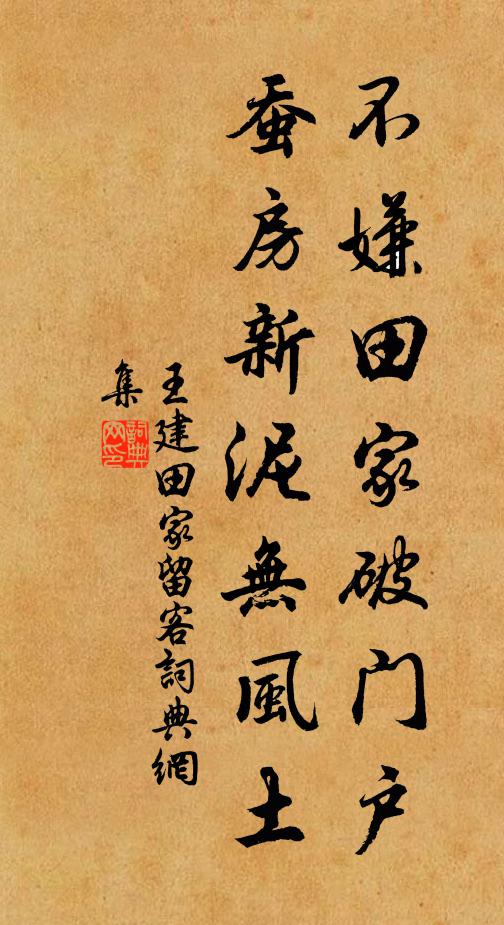 不嫌田家破门户
蚕房新泥無風土
王建田家留客詞典網
集
詞典
网印